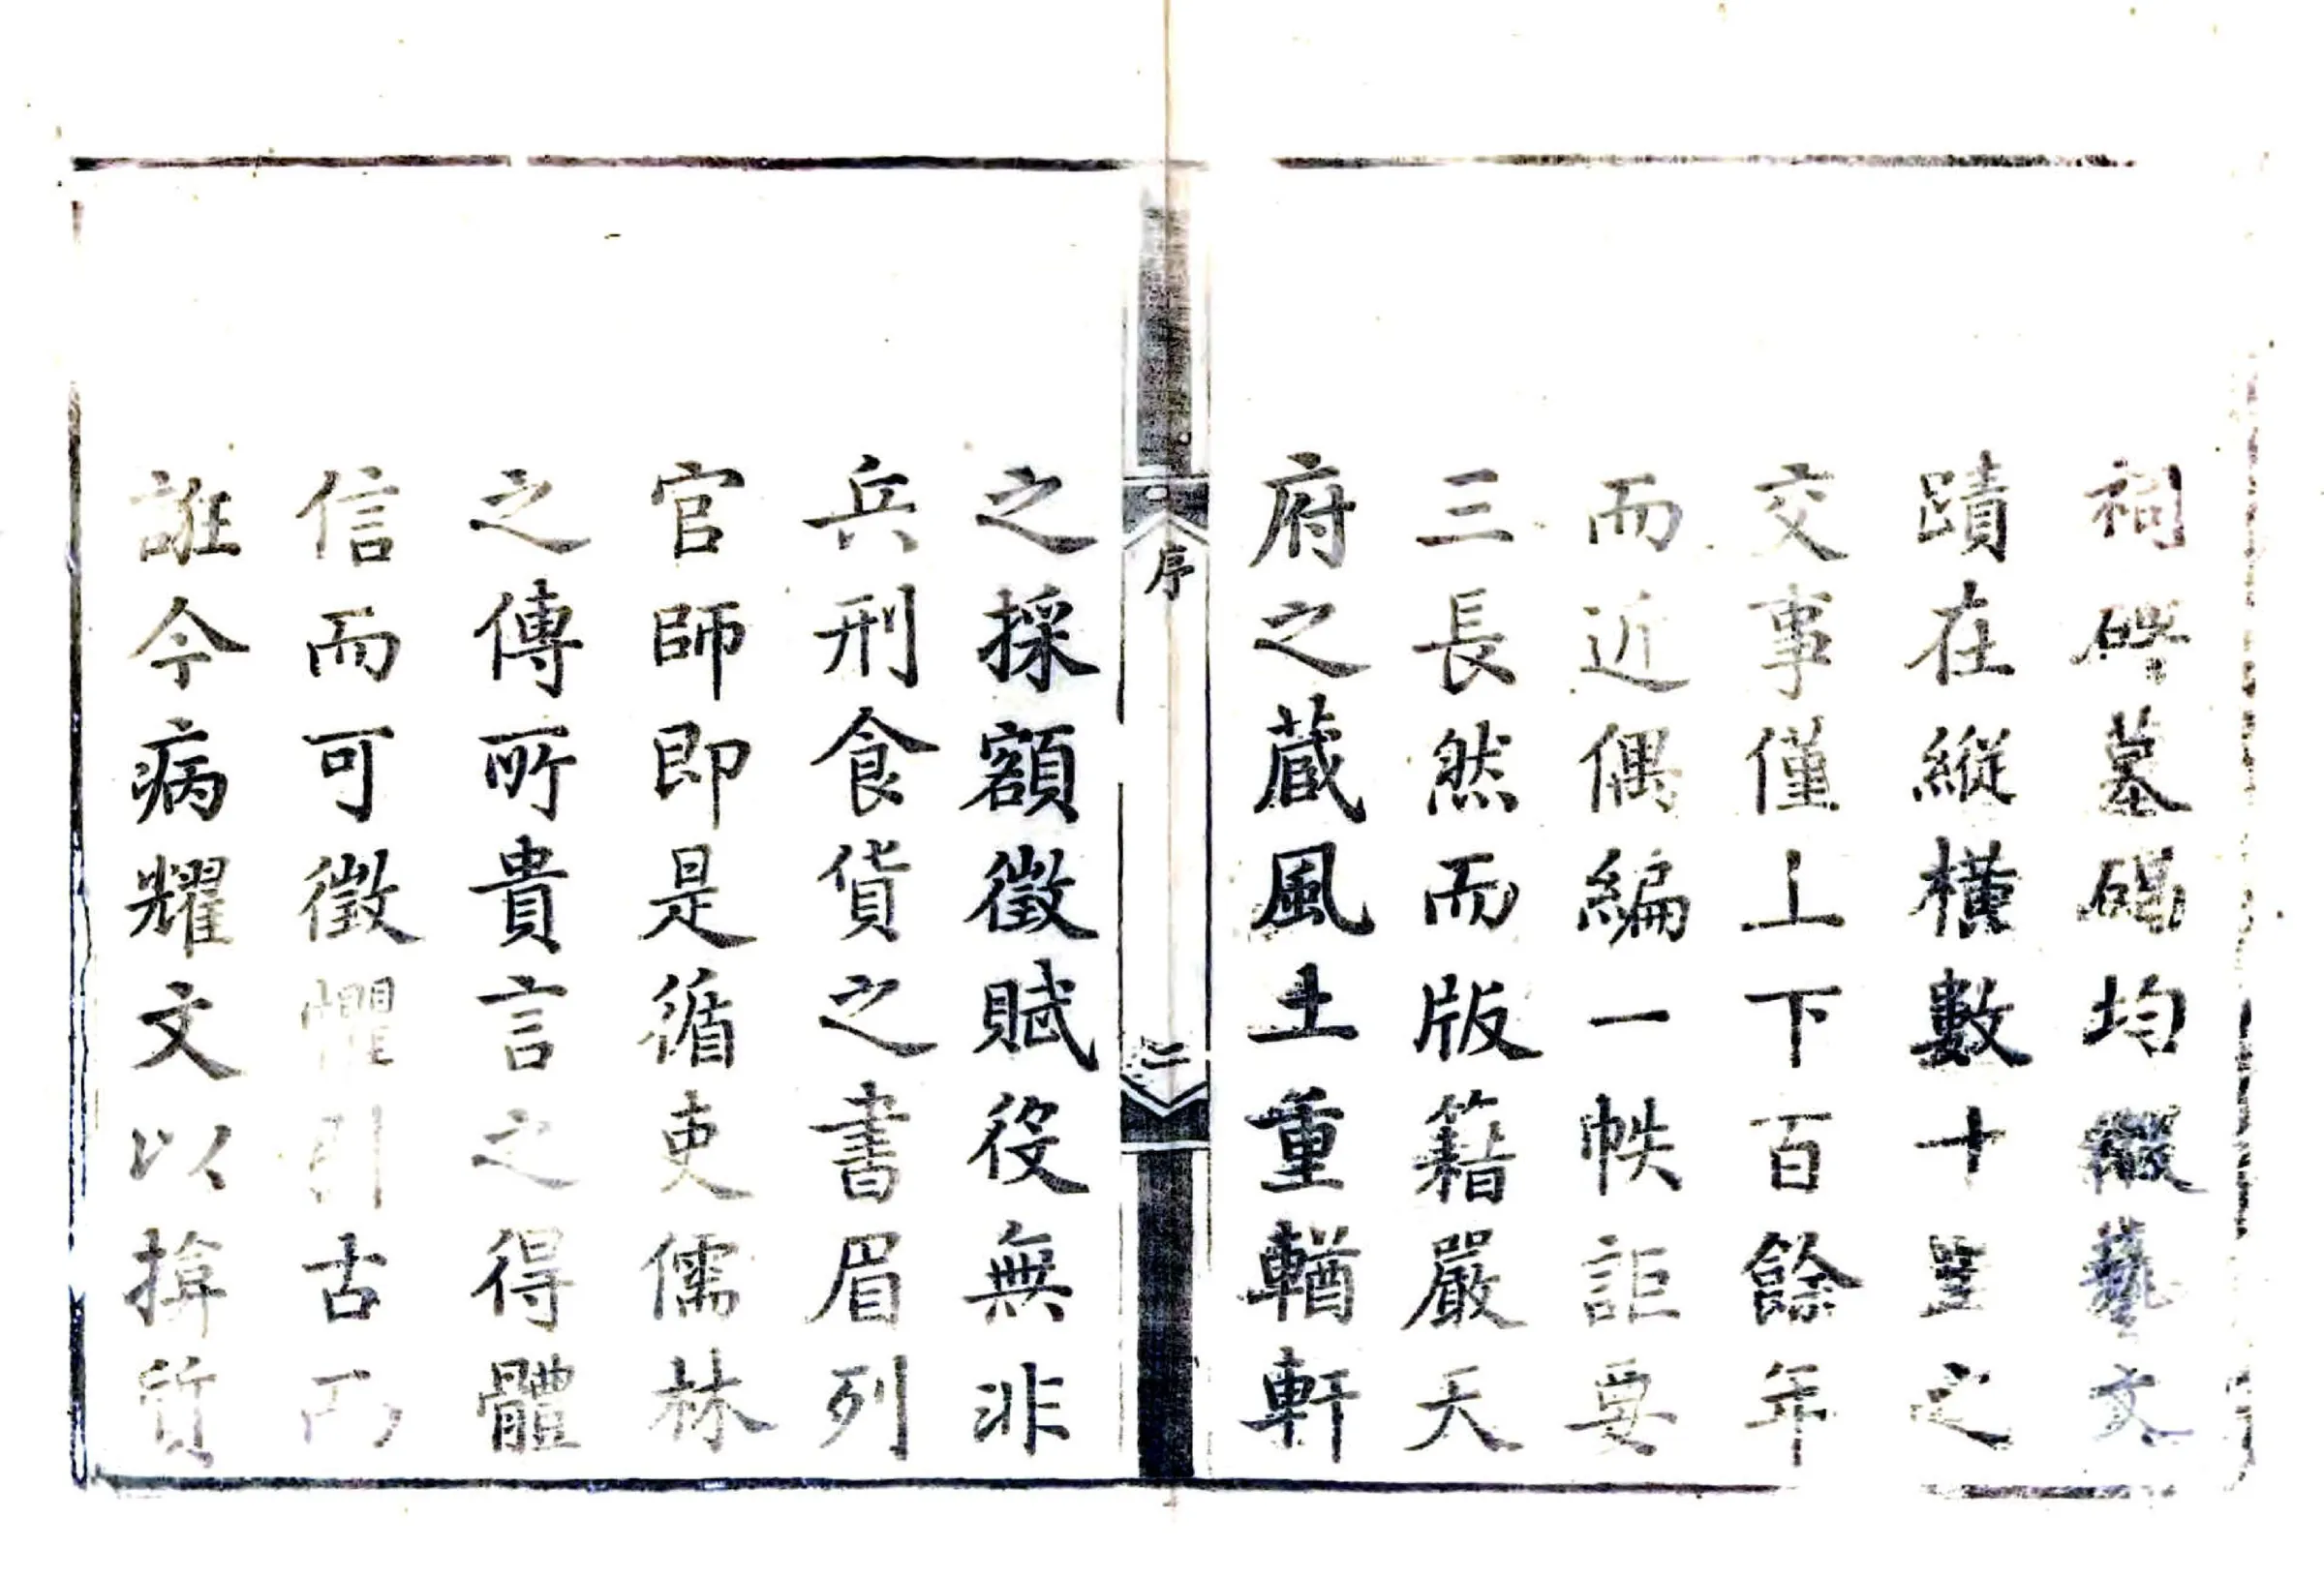 祠碑墓碣均綴藝文
蹟在縱横數十里之
交事僅上下百餘年
而近偶編一帙詎要
三長然而版籍嚴天
府之蔵風土重輶軒
序
二
之採額徵賦役無非
兵刑食貨之書眉列
官師即是循吏儒林
之傳所貴言之得體
信而可徵懼引古
誑今病耀文以揜質